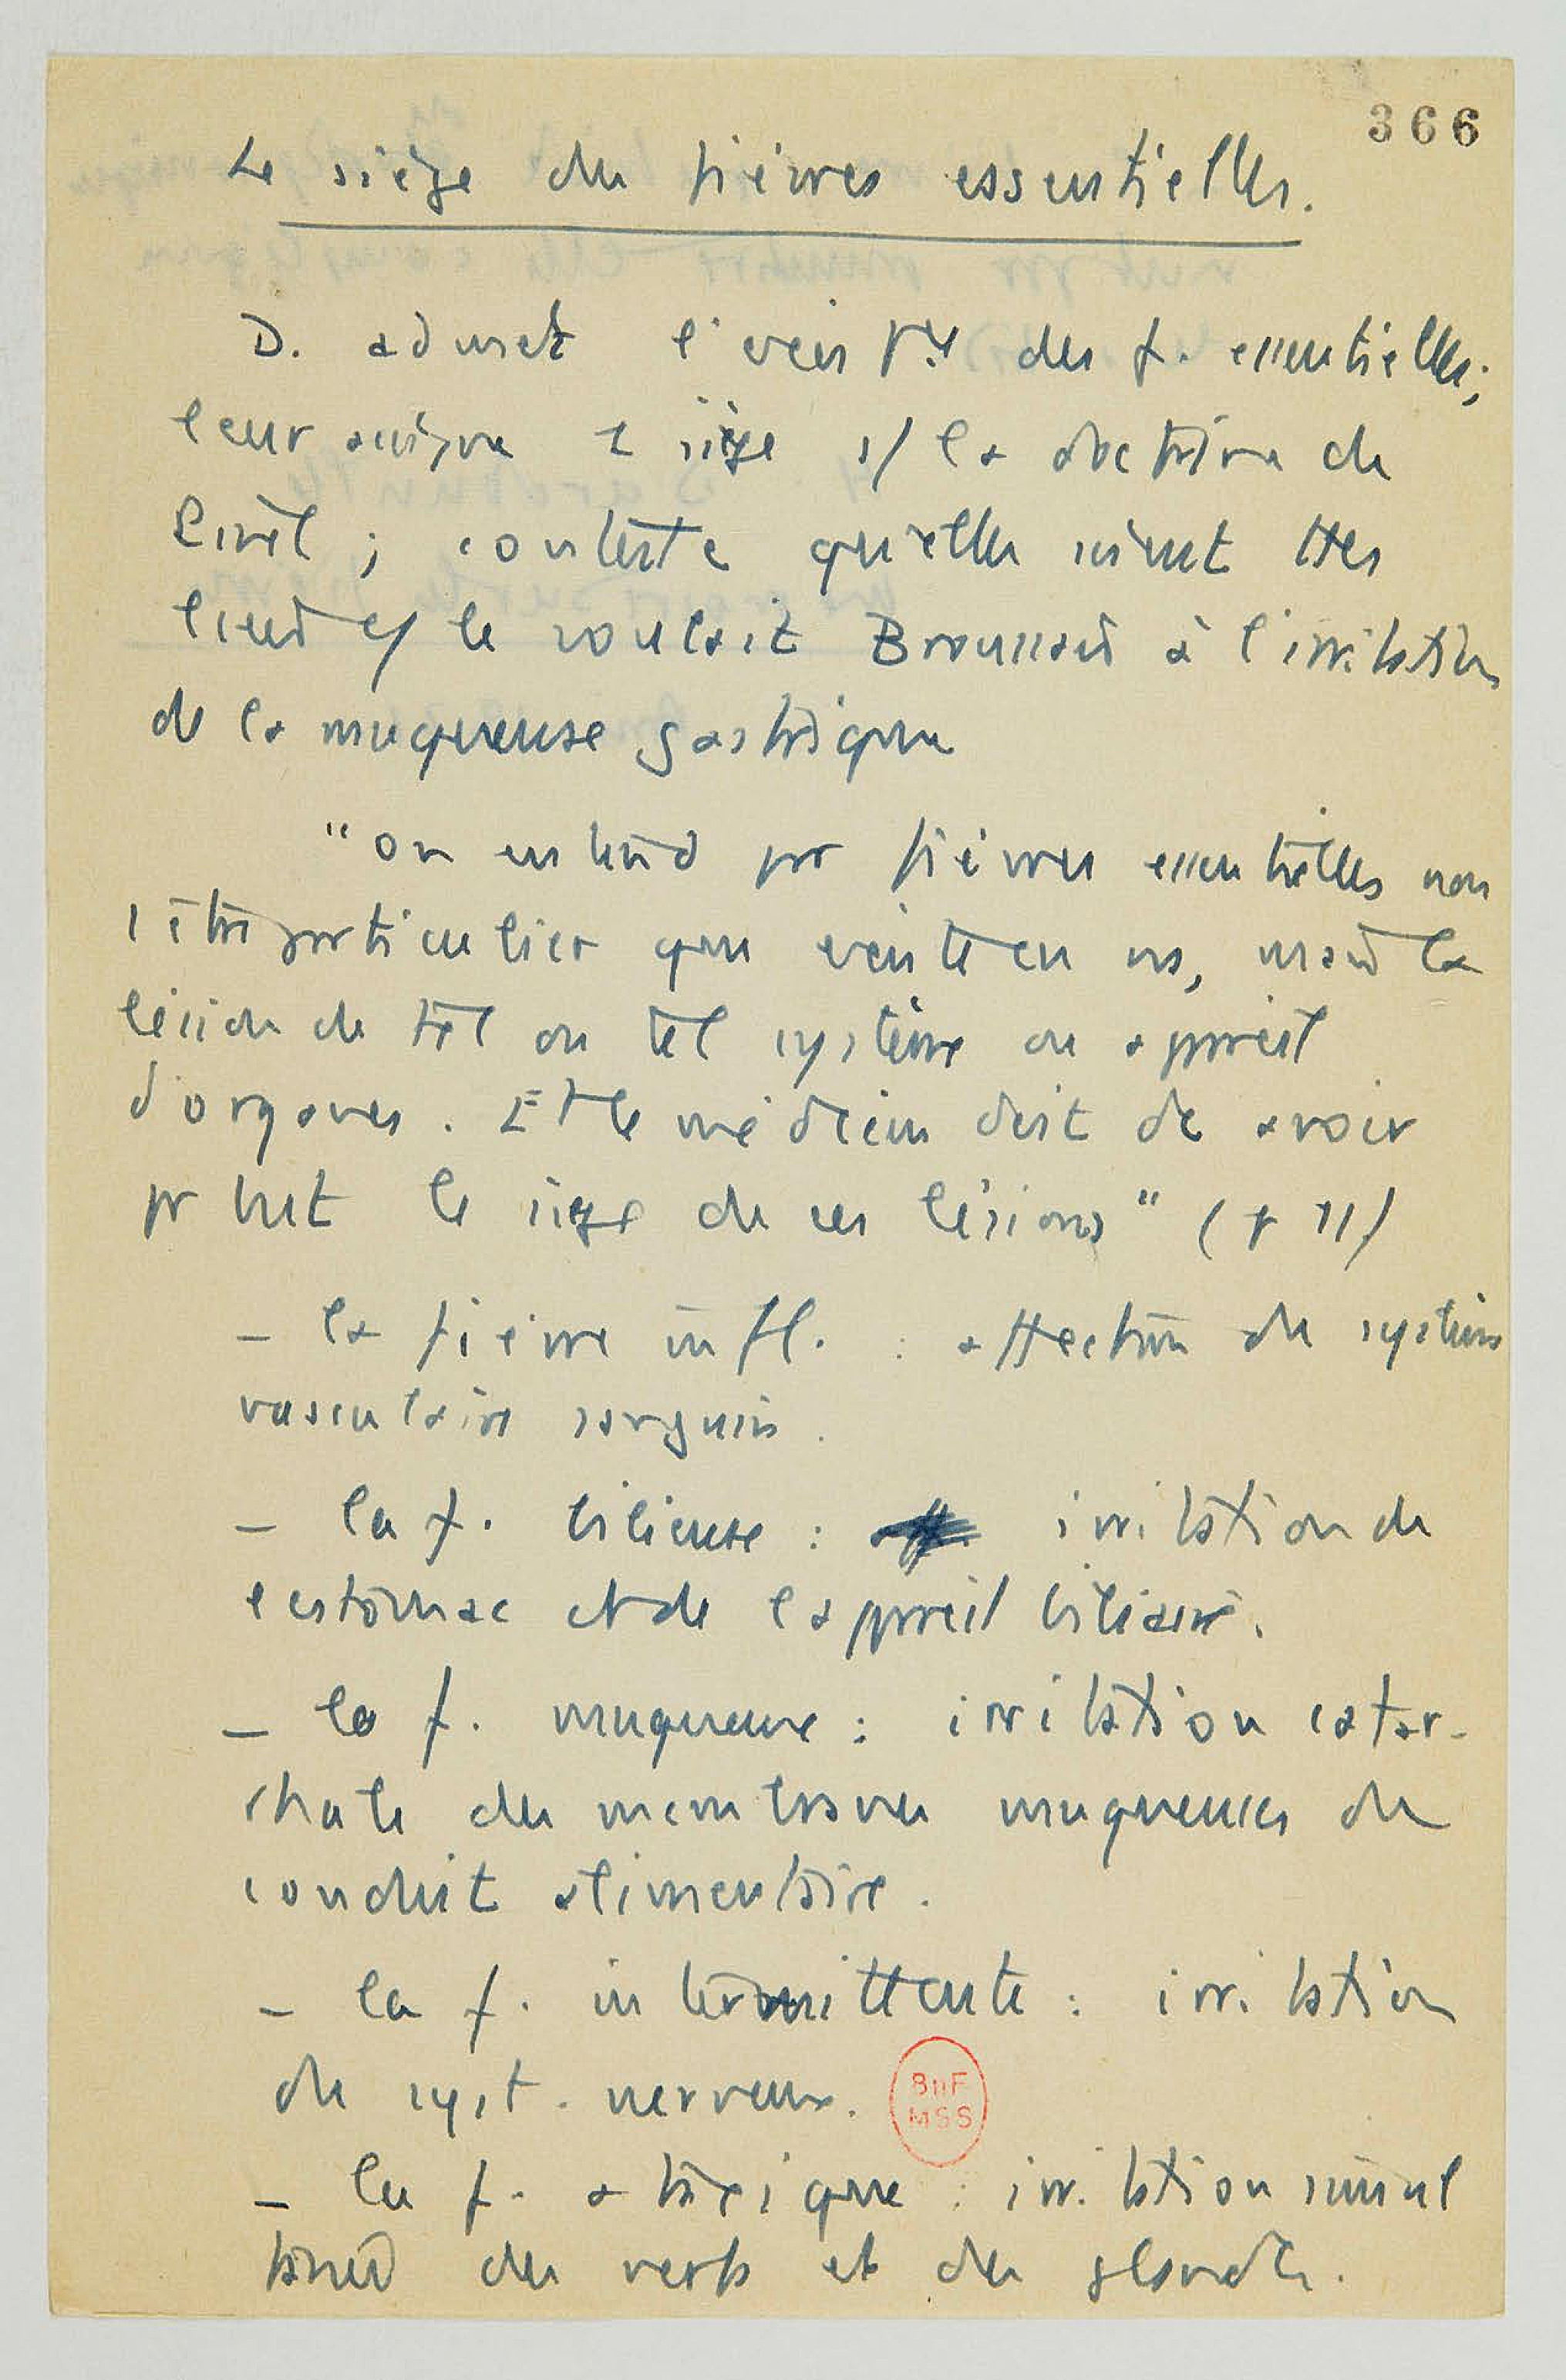 366
Le siège des fièvres essentielles.
D. admet l'exist des f. essentielles;
leur assigne 1 siège s/ la doctrine de
Pinel ; conteste qu'elles soient ttes
liées c/ le voulait Broussais à l'irritation
de la muqueuse gastrique
"On entend par fièvres essentielles non
1 être particulier qui existe en ns, mais la
lésion de tel ou tel système ou appareil
d'organes. Et le médecin doit de avoir
pr but le siège de ces lésions" (p 11)
- la fièvre infl. : affection du système
vasculaire sanguin.
- la f. bilieuse : irritation de
l'estomac et de l'appareil biliaire.
- la f. muqueuse : irritation catar-
rhale des membranes muqueuses du
conduit alimentaire.
- la f. intermittente : irritation
du syst. nerveux.
BnF
MSS
- la f. ataxique : irritation simul
tanée des et des glandes.